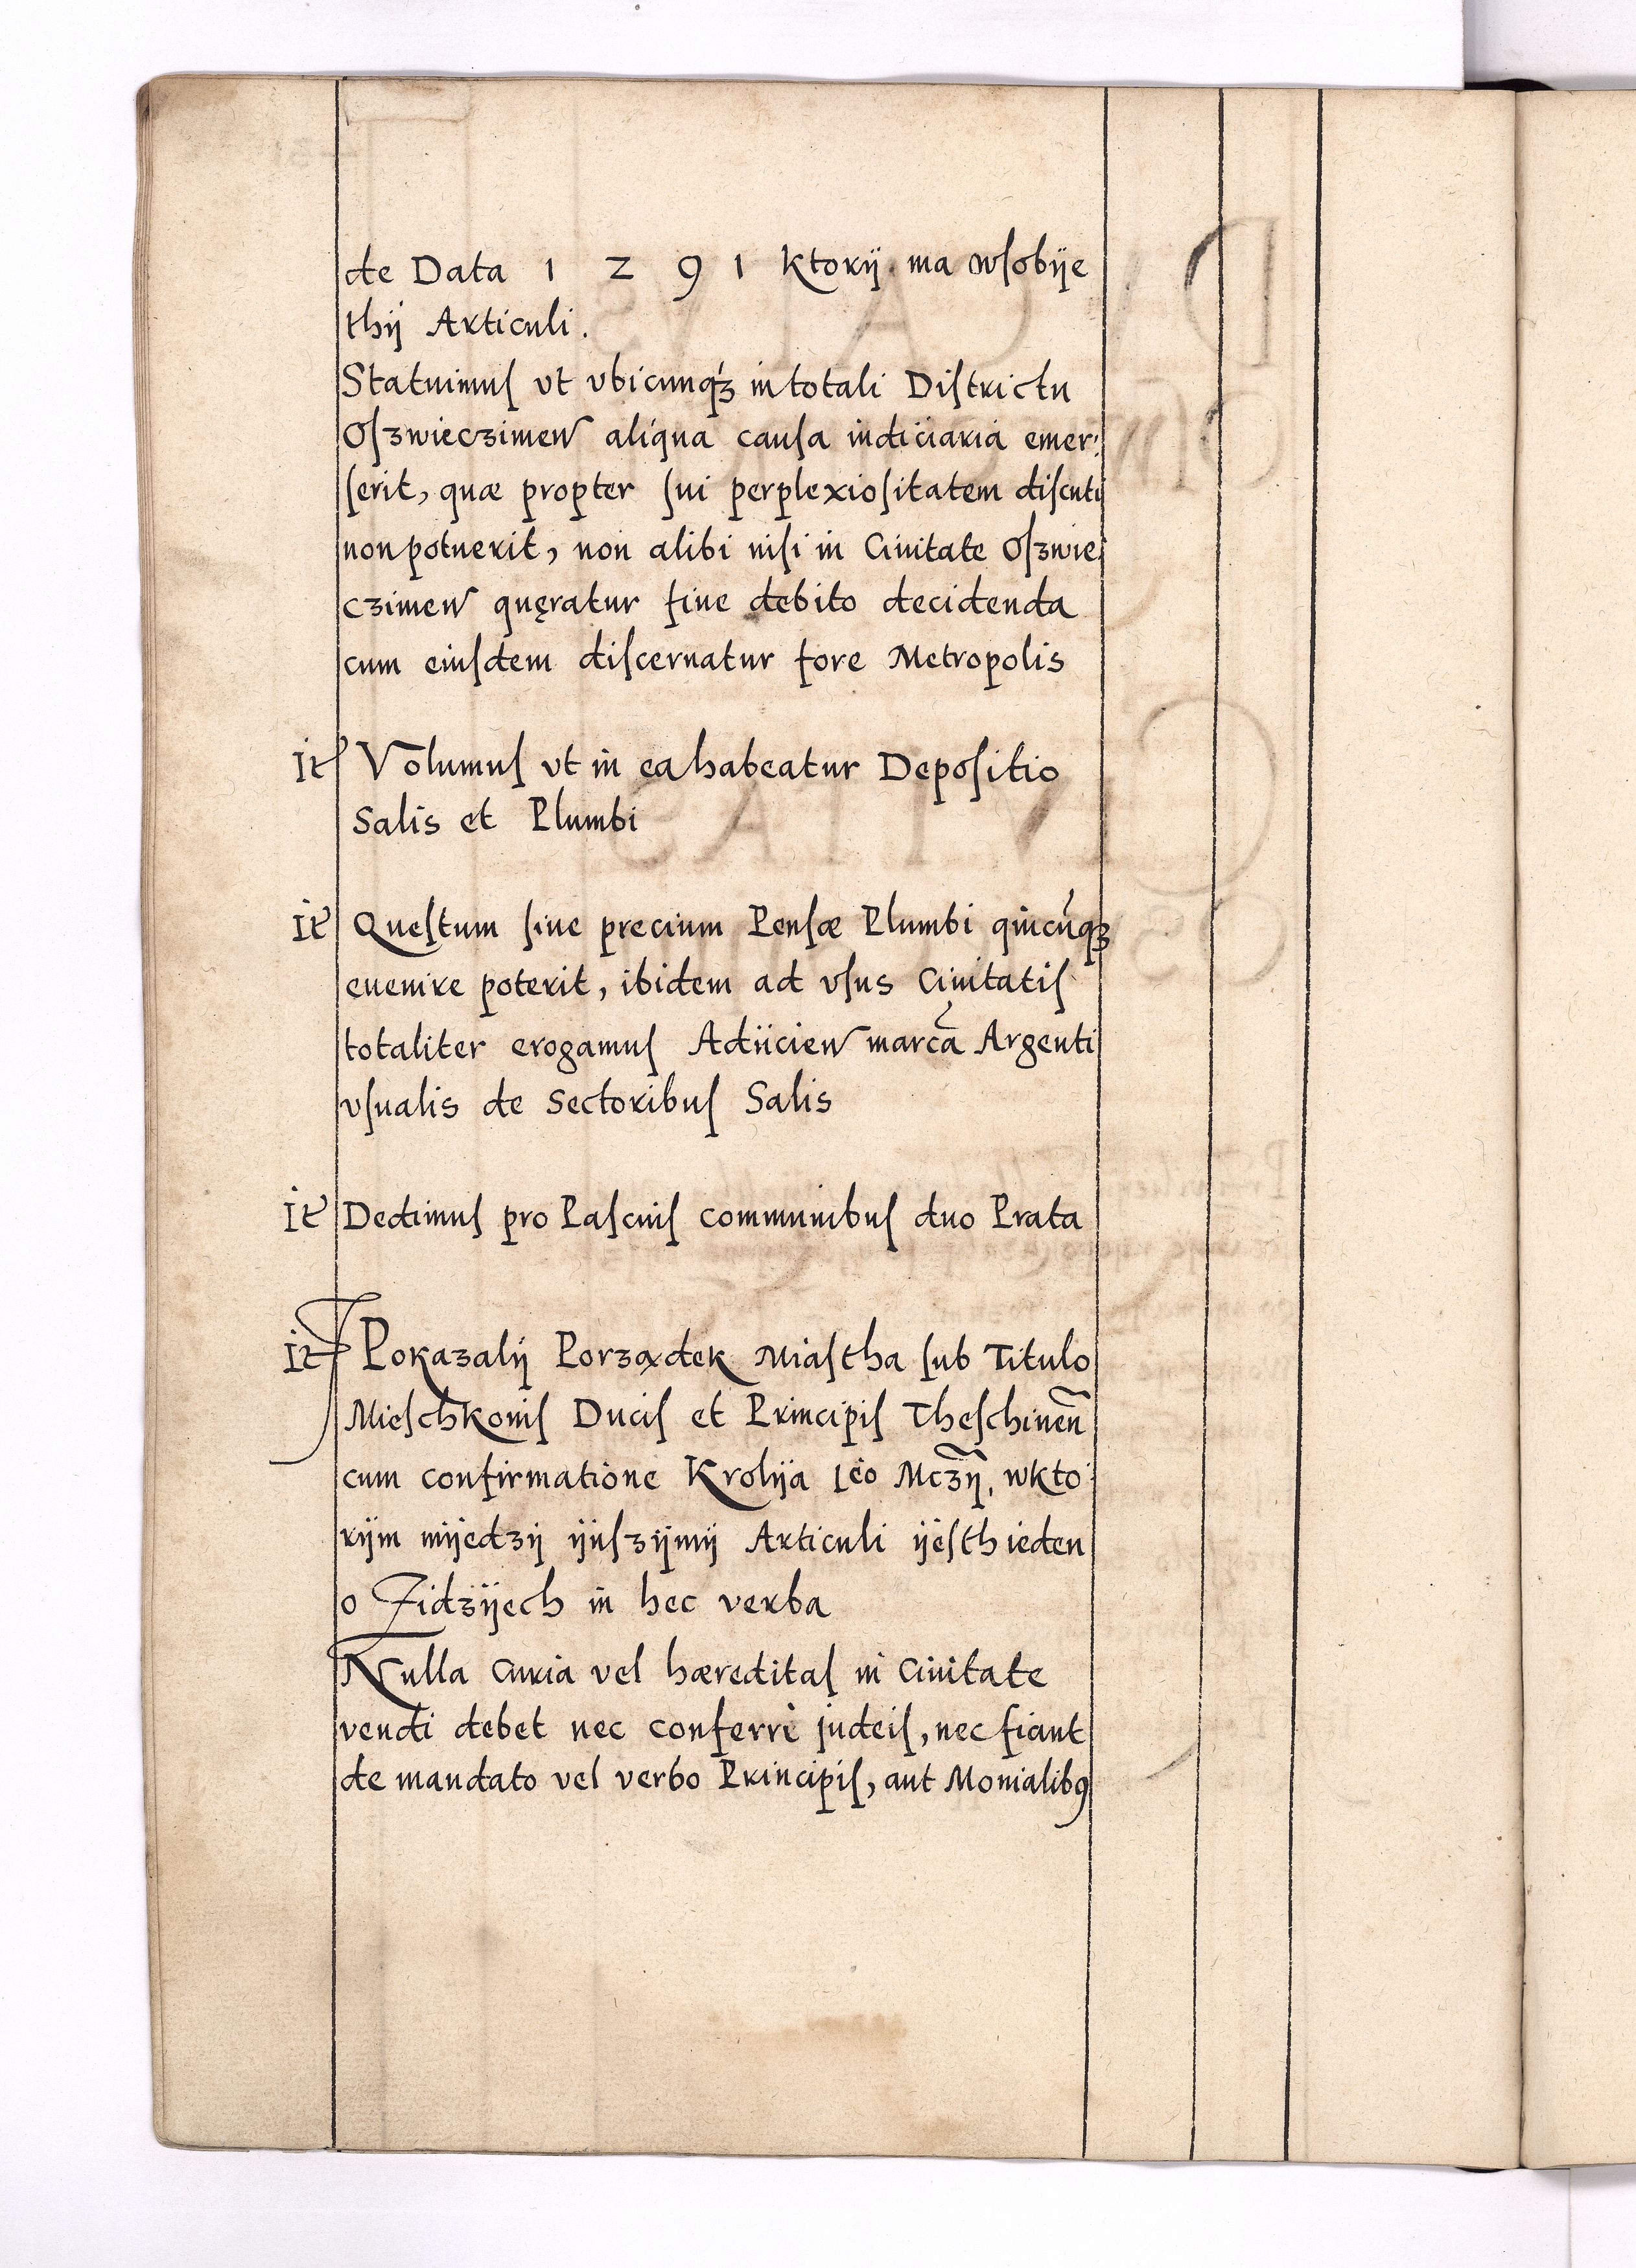 de Data 1 2 9 1 Ktorÿ ma wſobÿe
thÿ Articuli.
Statuimuſ vt vbicunqꝫ in totali Diſtrictu
Oſzwieczimen̄ aliqua cauſa iudiciaria emer:
ſerit, quæ propter ſui perplexioſitatem diſcuti
non potuerit, non alibi niſi in Ciuitate Oſzwie
czimen̄ quęratur fine debito decidenda
cum eiuſdem diſcernatur fore Metropolis
It̃ Volumuſ vt in ea habeatur Depoſitio
Salis et Plumbi
It̃ Queſtum ſiue precium Penſæ Plumbi quicũqꝫ
euenire poterit, ibidem ad vſus Ciuitatiſ
totaliter erogamuſ Adiicien̄ marcã Argenti
vſualis de Sectoribuſ Salis
It̃ Dedimuſ pro Paſcuiſ communibuſ duo Prata
It̃ Pokazalÿ Porządek Miaſtha ſub Titulo
Mieſchkoniſ Duciſ et Principiſ Theſchineñ
cum confirmatione Krolÿa Ieo Mczÿ, wkto:
rÿm mÿedzÿ ÿnſzÿmÿ Articuli ÿeſth ieden
o Zidzÿech in hec verba
Nulla Curia vel hæreditaſ in Ciuitate
vendi debet nec conferri judeiſ, nec fiant
de mandato vel verbo Principiſ, aut Monialibꝰ